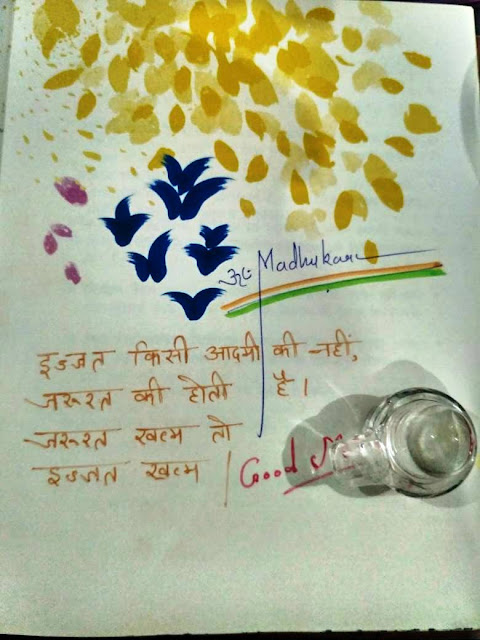 Madhukar
इज्जत किसी आदमी की नहीं,
जरूरत की होती है।
जरूरत खत्म तो
इज्जत खत्म | Good